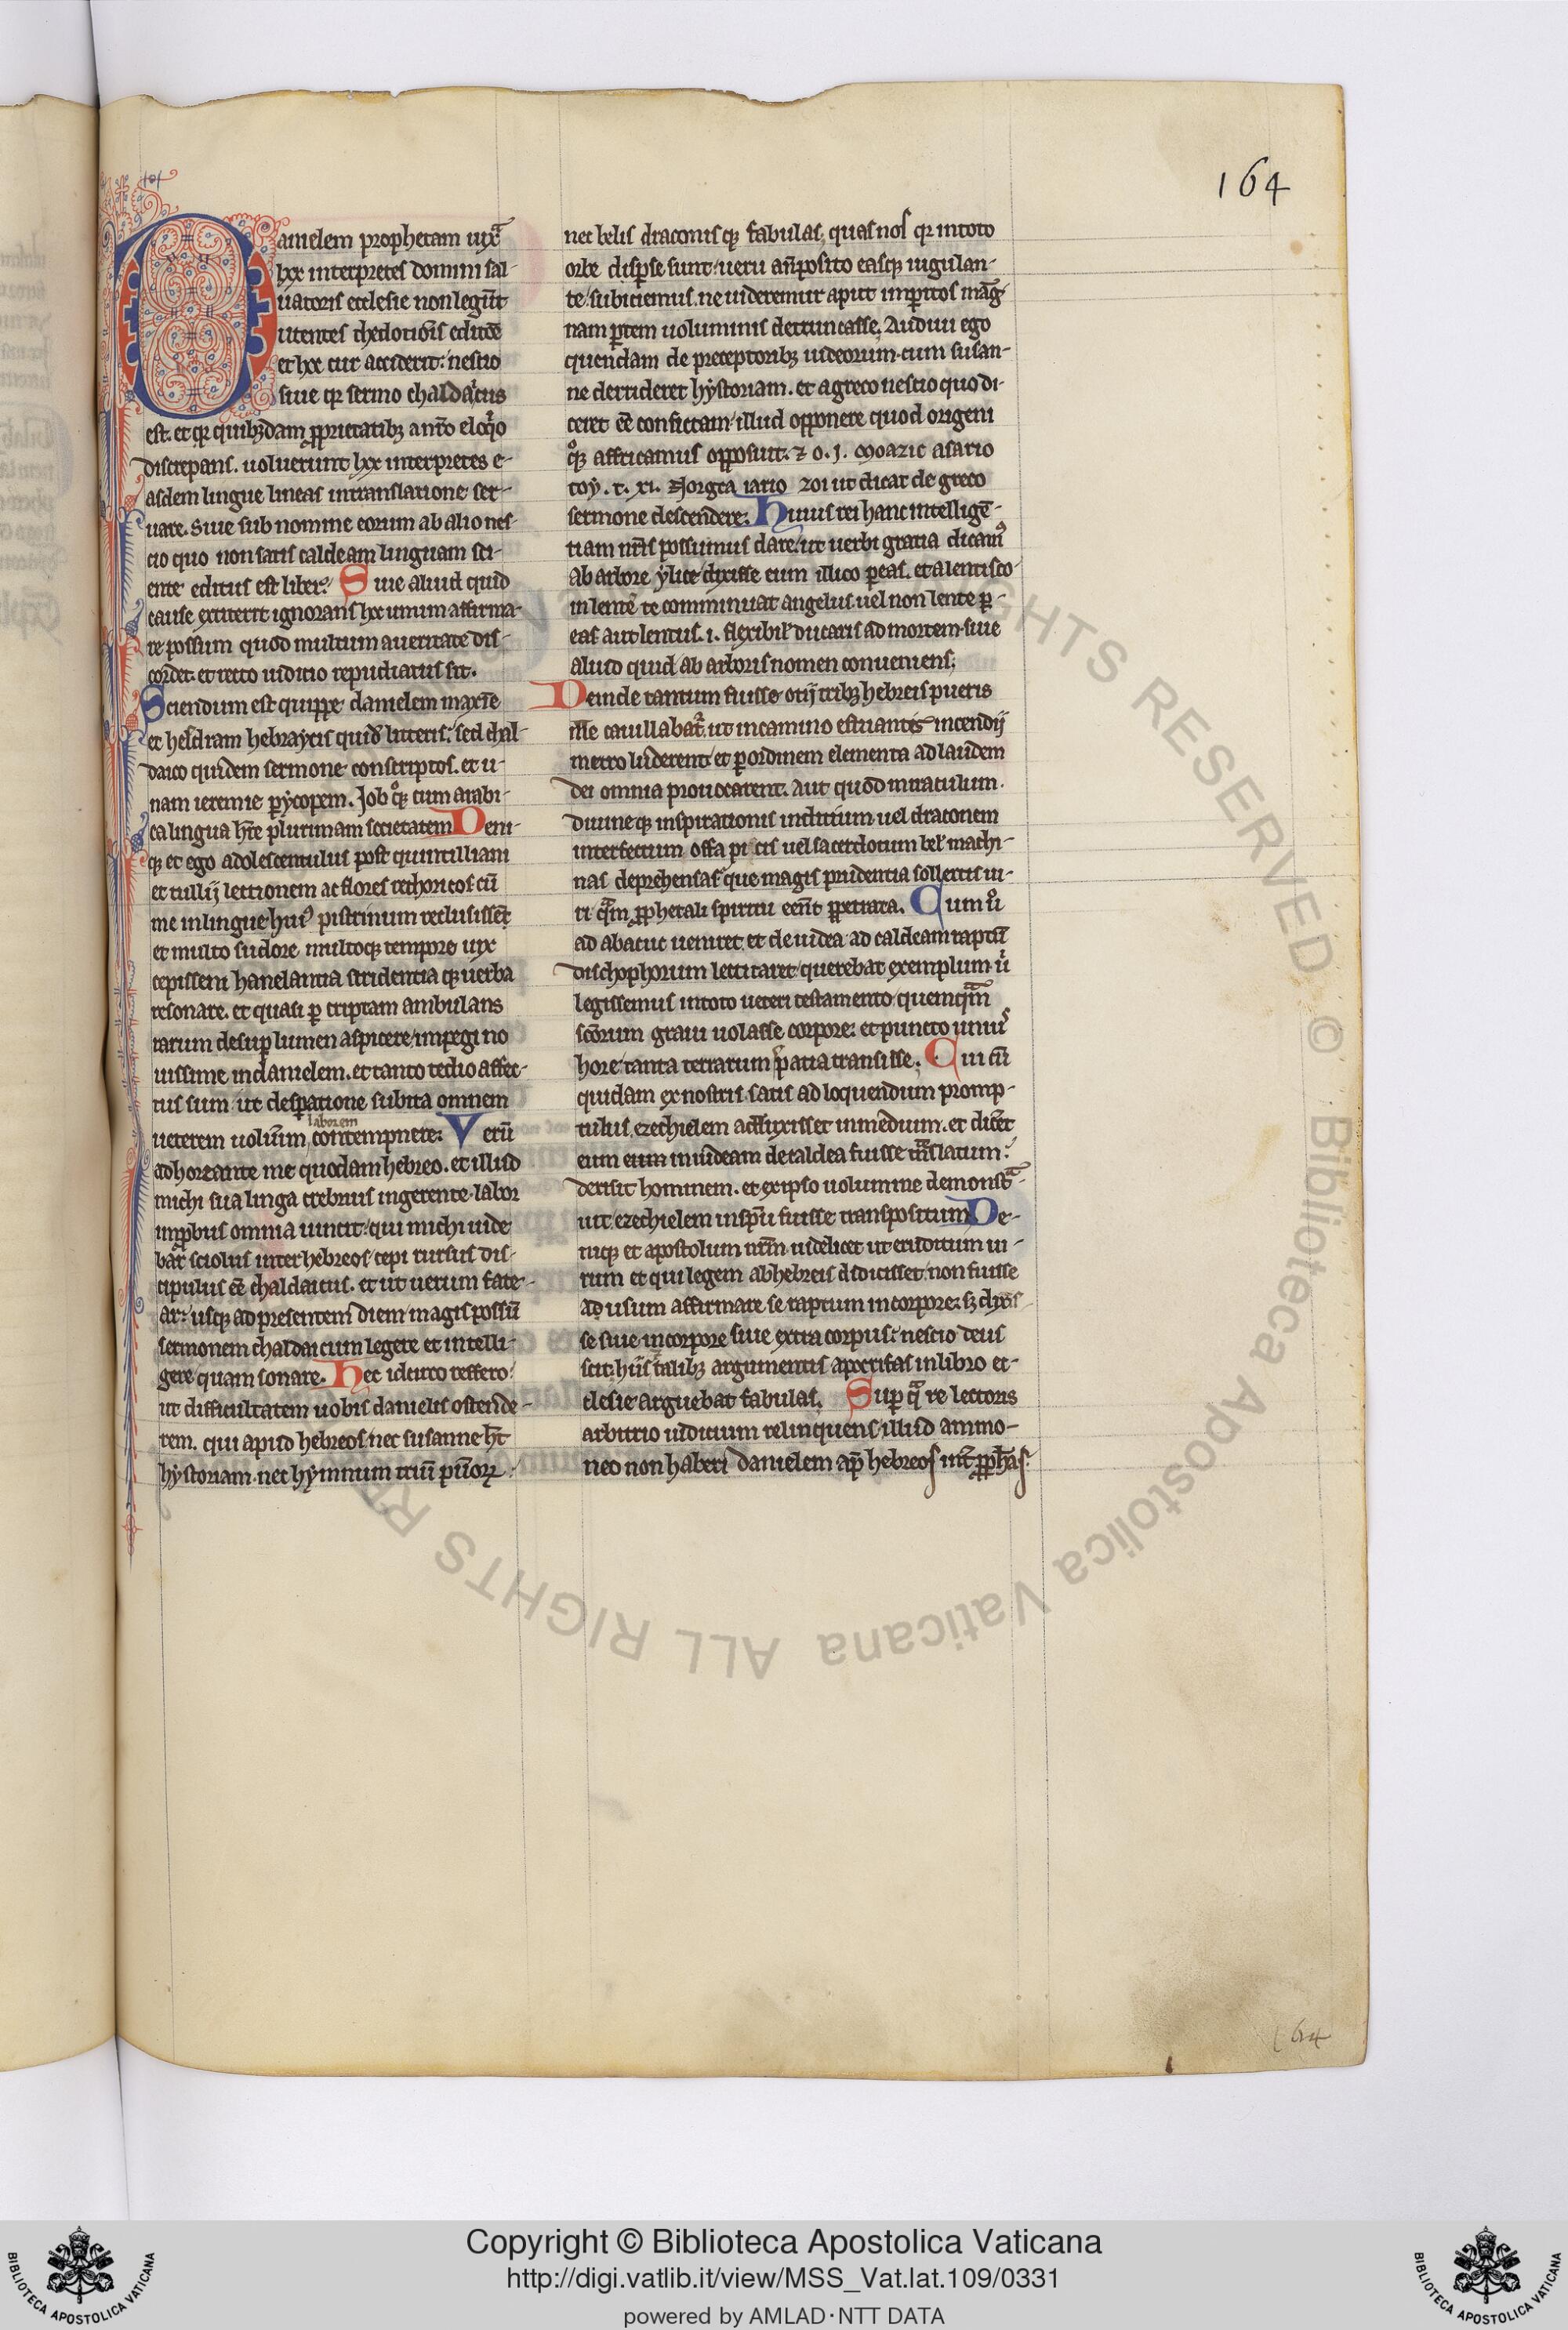 164
Danielem prophetam iuxͣ
lxx interpretes domini sal-
uatoris ecclesie non legūt
utentes theodotiōis editōe
et hoc cur acciderit: nescio
siue qꝛ sermo chaldaicus
est. et qꝛ quibꝫdam ꝓprietatibꝫ a nr̄o eloqͥo
discrepans. uoluerunt lxx interpretes e-
asdem lingue lineas in translatione ser-
uare. Siue sub nomine eorum ab alio nes-
cio quo non satis caldeam linguam sci-
ente editus est liber. Siue aliud quid
cause extiterit ignorans hoc unum affirma-
re possum quod multum a ueritate dis-
cordet. et recto iuditio repudiatus sit.
Sciendum est quippe danielem maxīe
et hesdram hebraycis quidē litteris. sed chal-
daico quidem sermone conscriptos. et u-
nam ieremie ꝑycopem. Job qͦꝫ cum arabi-
ca lingua hr̄e plurimam societatem Deni-
qꝫ et ego adolescentulus post quintilliani
et tullij lectionem ac flores rethoricos cū
me in lingue huiꝰ pistrinum reclusissem̄
et multo sudore multoqꝫ tempore uix
cepissem hanelantia stridentia qꝫ uerba
resonare. et quasi ꝑ criptam ambulans
rarum desuꝑ lumen aspicere impegi no
uissime in danielem. et tanto tedio affec-
tus sum ut desꝑatione subita omnem
laborem
ueterem uolūm contempnere. Verū
adhortante me quodam hebreo. et illud
michi sua linga crebrius ingerente labor
imꝓbus omnia uincit: qui michi uide
bar̄ sciolus inter hebreos cepi rursus dis-
cipulus eē chaldaicus. et ut uerum fate-
ar: usqꝫ ad presentem diem magis possū
sermonem chaldaicum legere et intelli-
gere quam sonare. Hec idcirco reffero
ut difficultatem uobis danielis ostende-
rem. qui apud hebreos nec susanne hꝫt
hystoriam nec hymnum triū pūorꝝ
nec belis draconis qꝫ fabulas, quas nos qꝛ in toto
orbe disꝑse sunt ueru anteposito easqꝫ iugulan-
te subiciemus. ne uideremur aput imꝑitos mag-
nam ꝑtem uoluminis detruncasse. Audiui ego
quendam de preceptoribꝫ iudeorum cum susan-
ne derrideret hystoriam. et a greco nescio quo di-
ceret eē confictam illud opponere quod origeni
qͦꝫ affricanus opposuit. ⁊ o. j. moazic asario
toy. t. xi. Zjorgta iario zoi ut dicat de greco
sermone descendere. Huius rei hanc intelligē-
tiam nr̄is possumus dare. ut uerbi gratia dicamꝰ
ab arbore ylice dixisse eum illico ꝑeas. et a lentisco
in lentē te comminuat angelus. uel non lente ꝑ-
eas aut lentus .i. flexibil' ducaris ad mortem siue
aliud quid ab arboris nomen conueniens.
Deinde tantum fuisse otij tribꝫ hebreis pueris
ille cauillabat̄. ut in camino estuantis incendij
metro luderent et ꝑ ordinem elementa ad laudem
dei omnia prouocarent. aut quod miraculum
diuineqꝫ inspirationis inditium uel draconem
interfectum offa picis uel sacerdotum bel' machi-
nas deprehensas que magis prudentia sollertis ui-
ri qͣm ꝓphetali spiritu eēnt ꝑpetrata. Cum u̓o
ad abacuc ueniret et de iudea ad caldeam raptū
dischophorum lectitaret querebat exemplum uͥ
legissemus in toto ueteri testamento quemqͣm
sc̄orum graui uolasse corpore. et puncto uniꝰ
hore tanta terrarum spatia transisse. Cui cū
quidam ex nostris satis ad loquendum promp-
tulus ezechielem adduxisset in medium. et dicēt
eum eum in iudeam de caldea fuisse trāslatum:
derisit hominem. et ex ipso uolumine demonstͣ-
uit ezechielem in spū fuisse transpositum De-
niqꝫ et apostolum nr̄m uidelicet ut eruditum ui-
rum et qui legem ab hebreis didicisset non fuisse
ad usum affirmare se raptum in corpore: sꝫ dixis-
se siue in corpore siue extra corpus: nescio deus
scit. hiis talibꝫ argumentis apocrifas in libro ec-
clesie arguebat fabulas. Suꝑ qͣ re lectoris
arbitrio iuditium relinquens illud ammo-
neo non haberi danielem ap̄ hebreos int̄ ꝓph̄as.
164
Copyright © Biblioteca Apostolica Vaticana
http://digi.vatlib.it/view/MSS_Vat.lat.109/0331
powered by AMLAD·NTT DATA